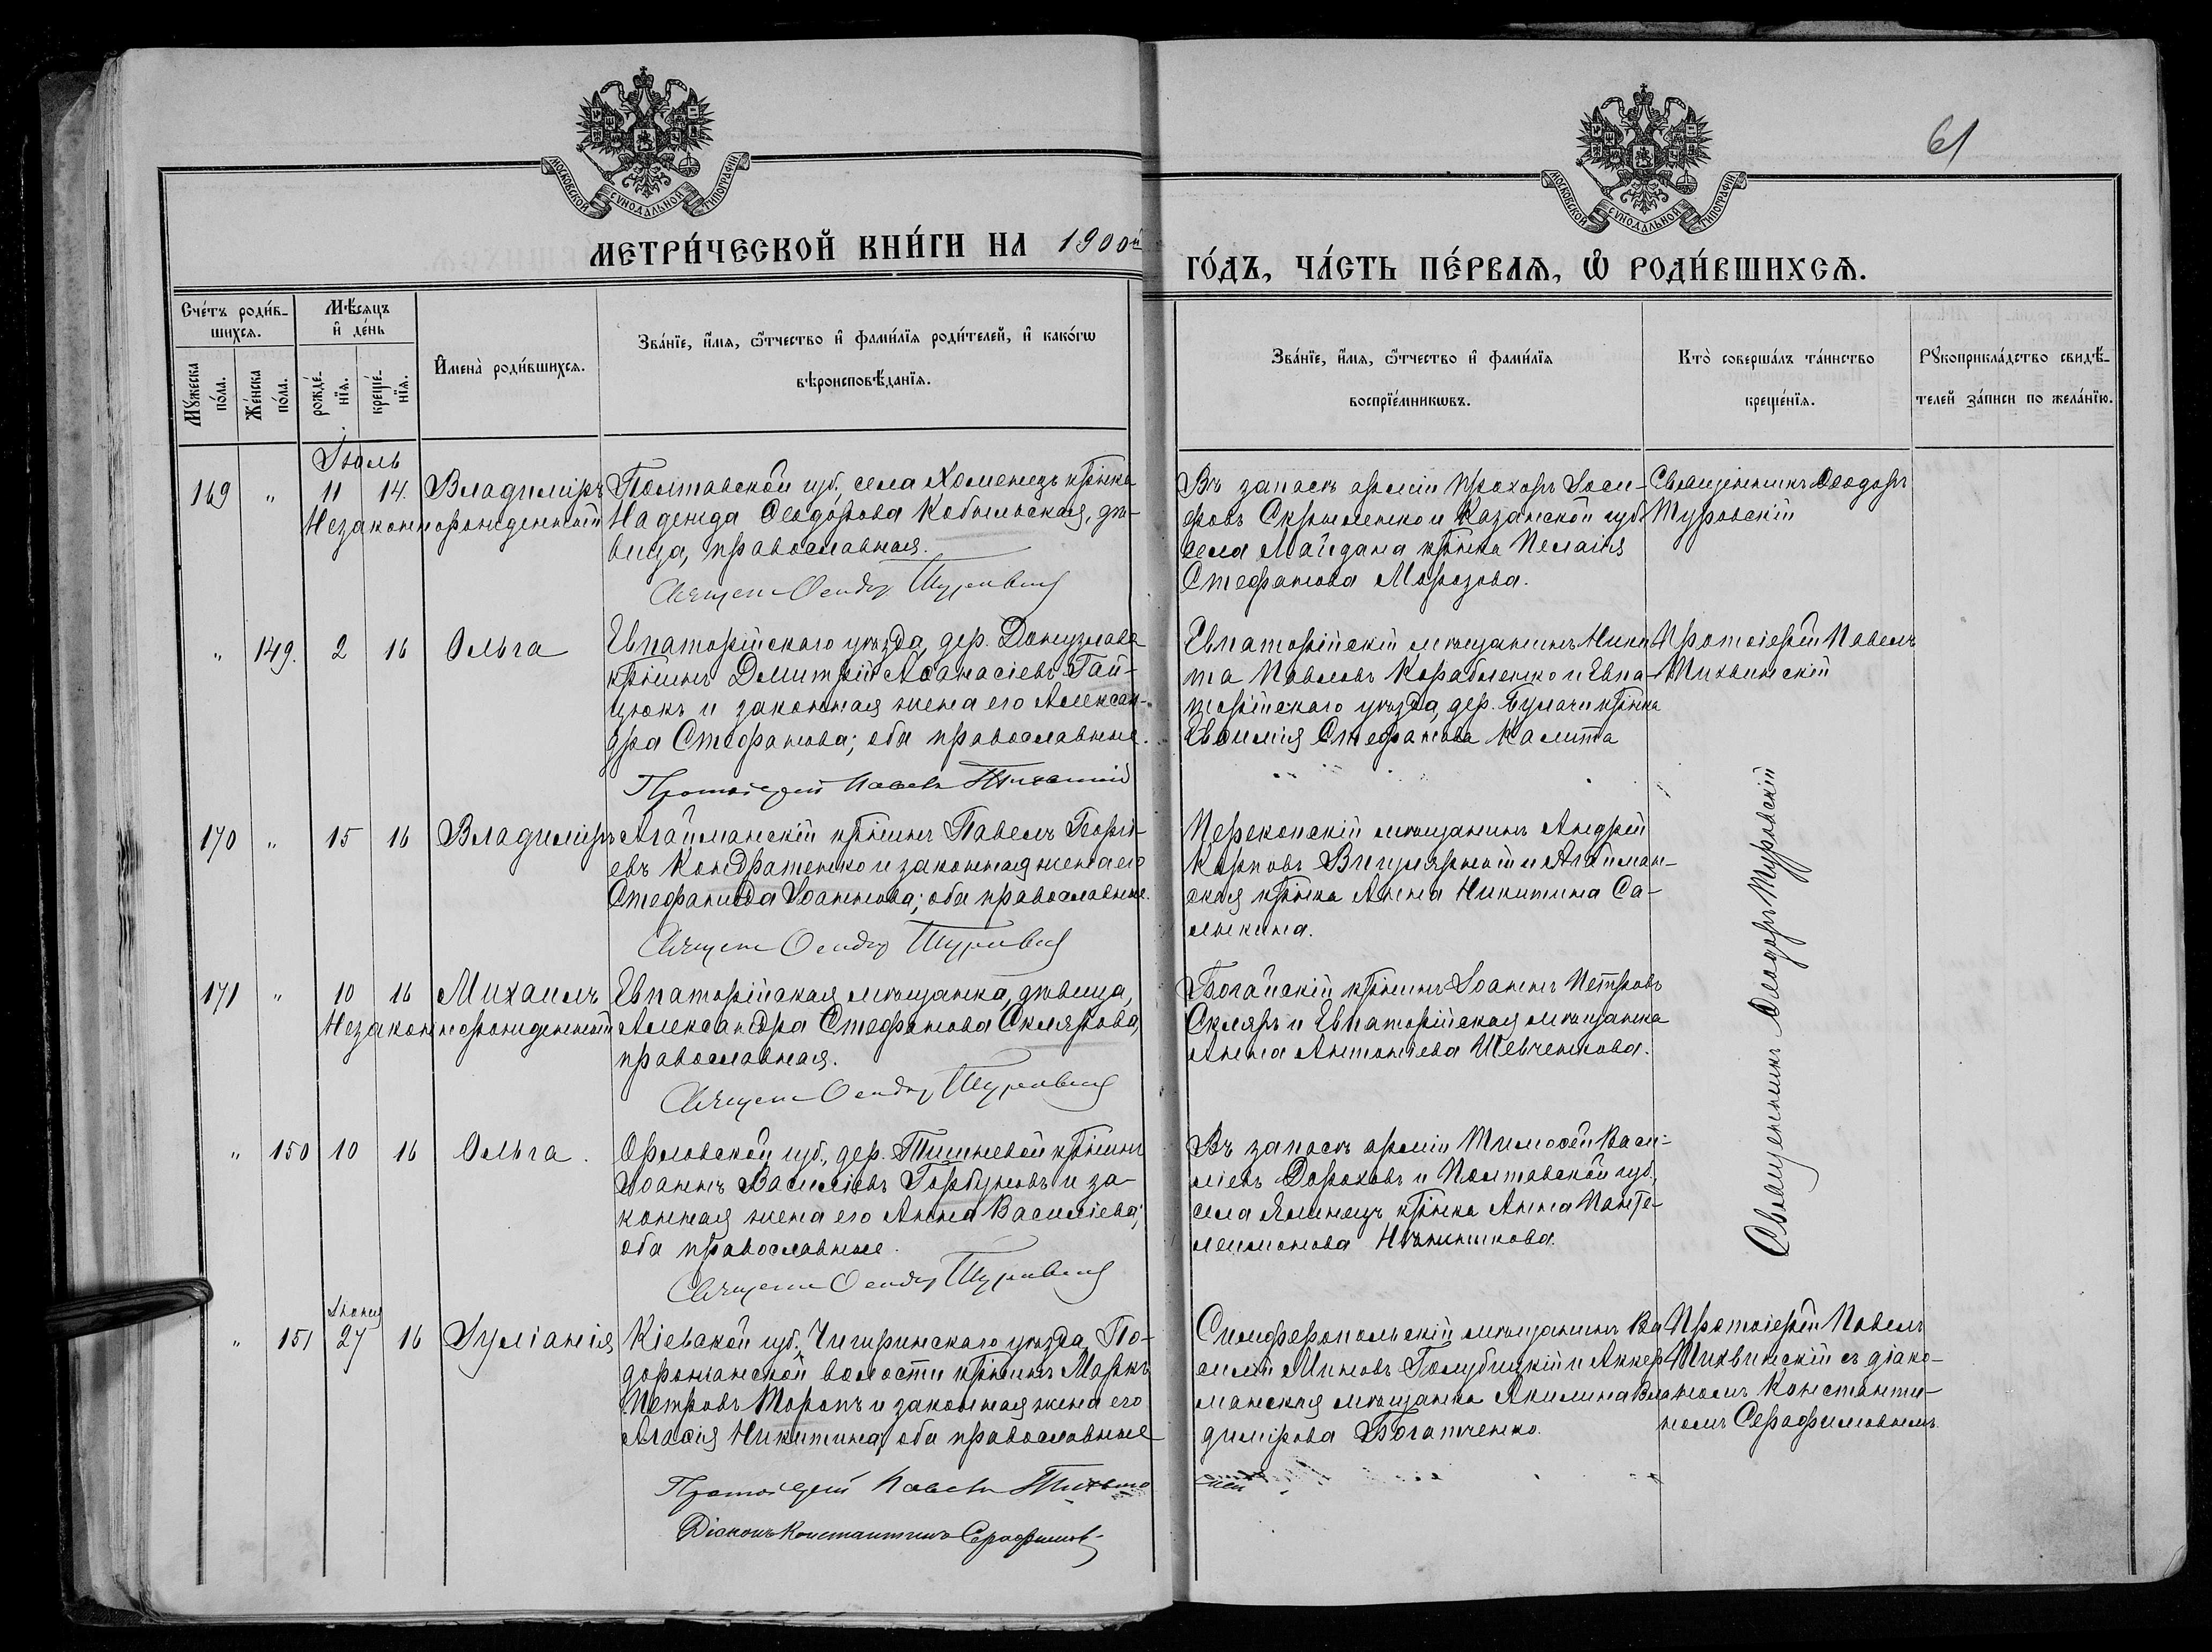 61
МОСКОВСКОЙ СѴНОДАЛЬНОЙ ТИПОГРАФІИ
МОСКОВСКОЙ СѴНОДАЛЬНОЙ ТИПОГРАФІИ
МЕТРИ́ЧЕСКОЙ КНИ́ГИ НА 1900й
ГО́ДЪ, ЧА́СТЬ ПЕ́РВАѦ, Ѡ҆ РОДИ́ВШИХСѦ.
Сче́тъ роди́в-
шихсѧ.
Мѣ́сяцъ
и҆ де́нь
Мꙋ́жеска
по́ла.
Же́нска
по́ла.
рожде́-
нїѧ.
креще́-
нїѧ.
И҆мена̀ роди́вшихсѧ.
Зва́нїе, и҆́мѧ, ѻ҆́тчество и҆ фами́лїѧ роди́телей, и҆ како́гѡ
вѣроисповѣ́данїѧ.
Зва́нїе, и҆́мѧ, ѻ҆́тчество и҆ фами́лїѧ
воспрїе́мникѡвъ.
Кто̀ соверша́лъ та́инство
креще́нїѧ.
Рꙋкоприкла́дство свидѣ́-
телей за́писи по жела́нїю.
Іюль
169 " 11 14. Владиміръ
Незаконнорожденный
Полтавской губ., села Хоменецъ кр-нка
Надежда Ѳеодорова Кобыльская, дѣ-
вица, православная.
Священ Ѳеодор Туровскій
Въ запасѣ арміи Прохоръ Іоси-
фовъ Скрыленко и Казанской губ.
села Майдана кр-нка Пелагія
Стефанова Морозова.
Священникъ Ѳеодоръ
Туровскій
" 149. 2 16 Ольга
Евпаторійскаго уѣзда, дер. Донузлава
кр-нинъ Димитрій Аѳанасіевъ Гай-
цюкъ и законная жена его Алексан-
дра Стефанова; оба православные.
Протоіерей Павелъ Тихвинскій
Евпаторійскій мѣщанинъ Ники-
та Павловъ Корабленко и Евпа-
торійскаго уѣзда, дер. Булачи кр-нка
Евѳимія Стефанова Калита
Протоіерей Павелъ
Тихвинскій
170 " 15 16 Владиміръ
Агайманскій кр-нинъ Павелъ Георгі-
евъ Кондратенко и законная жена его
Стефанида Іоаннова; оба православные.
Священ Ѳеодор Туровскій
Перекопскій мѣщанинъ Андрей
Карповъ и Агайман-
ская кр-нка Анна Никитина Са-
лыкина.
Священникъ Ѳеодоръ Туровскій
171 " 10 16 Михаилъ
Незаконнорожденный
Евпаторійская мѣщанка, дѣвица,
Александра Стефанова Склярова,
православная.
Священ Ѳеодор Туровскій
Богайскій кр-нинъ Іоаннъ Петровъ
Скляръ и Евпаторійская мѣщанка
Анна Антоніева Шевченкова.
" 150 10 16 Ольга.
Орловской губ., дер. Тишневой кр-нинъ
Іоаннъ Василіевъ Горбуновъ и за-
конная жена его Анна Василіева;
оба православные.
Священ Ѳеодор Туровскій
Въ запасѣ арміи Тимоѳей Васи-
ліевъ Дороховъ и Полтавской губ.,
села Ялинецъ кр-нка Анна Панте-
леимонова
Іюня
" 151 27 16 Іуліанія
Кіевской губ., Чигиринскаго уѣзда, По-
дорожанской волости кр-нинъ Маркъ
Петровъ Торопъ и законная жена его
Агаѳія Никитина; оба православные
Протоіерей Павелъ Тихвин
скій
Діаконъ Константинъ Серафимовъ
Симферопольскій мѣщанинъ Ва-
силій Миновъ Голубицкій и Аккер-
манская мѣщанка Акилина Вла-
димірова Богатченко.
Протоіерей Павелъ
Тихвинскій съ діако-
номъ Константи-
номъ Серафимовымъ.